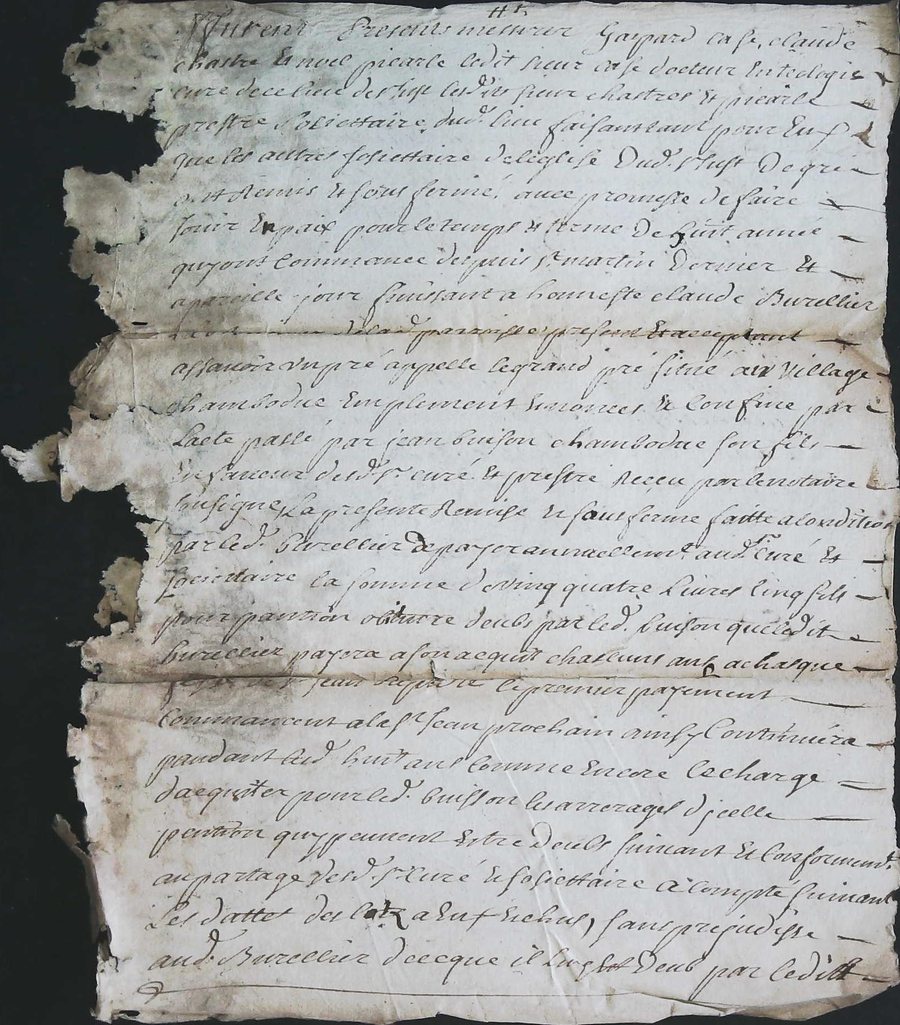 Furent Presents messire Gaspard Case, claude
chastre & noel picarle ledit sieur case docteur en teologie
cure de ce lieu de st just lesd. srs sieur chastres & picarle
prestre sosiettaire dud. lieu faisant tant pour eux
que les autres sosiettaire de leglise dud. st just De gré
ont Remis & sous fermé, avec promesse de faire
jouir En paix pour le temps & terme De huit année
quy ont Commancé depuis st martin Dernier &
a pareille jour finissant a honneste claude Burellier
de lad. parroisse present & acceptant
assavoir un pré appelle le grand pré situé au village
chambodue Emplement enonces & Confine par
Lacte passé par jean buison chambodue son fils
En faveur desd. sr curé & prestre Receu par le notaire
susigne, La presente Remise & sous ferme faitte a condition
par led. burellier de payer annuellemt. aud. sr curé &
sosiettaire la somme de vingt quatre Livres cinq sols
pour pantion deubs par led. buison que ledit
burellier payera a son acquit chascuns ans a chasque
jean le premier payement
Commancent a la st jean prochain ainsy Continuera
pandant lesd. huit ans Comme Encore le charge
dacquiter pour led. buisson les arrerages dicelle
pention quy peuvent Estre deubs suivant & Conformemt.
au partage desd. sr Curé & sosiettaire a compte suivant
Les dattes des lotz a Eux Echus, sans prejudisse
aud. Burellier de ce que il luy est deub par ledit